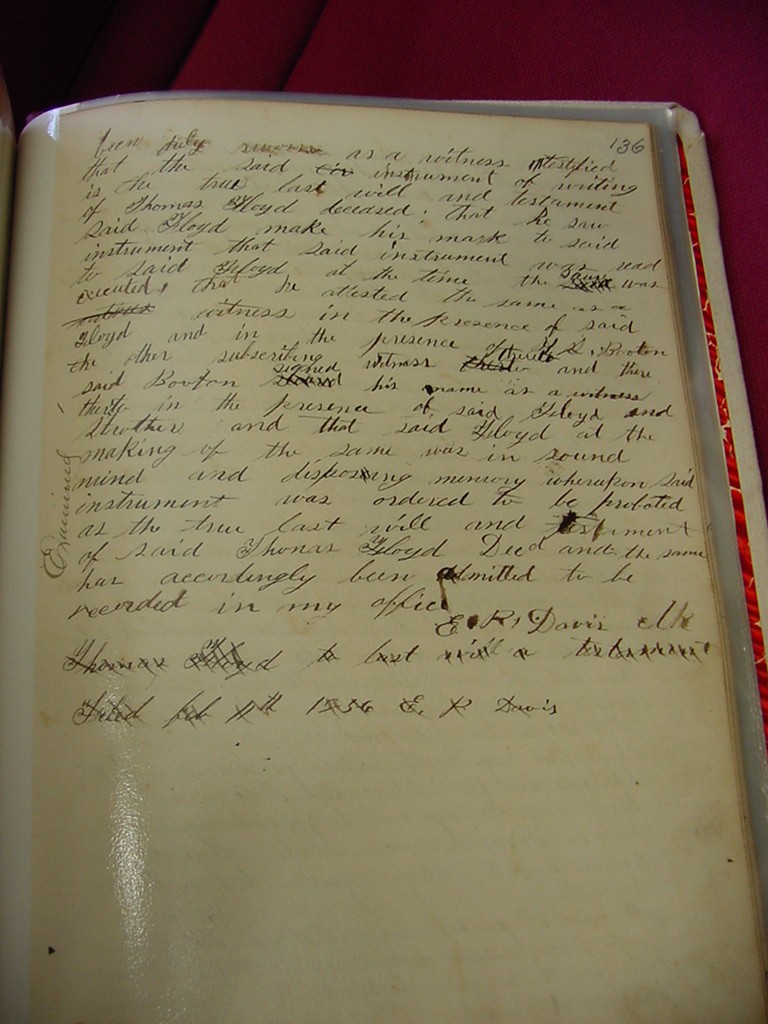 136
been duly sworn as a witness testified
that the said instrument of writing
is the true last will and testament
of Thomas Floyd deceased. that he saw
said Floyd make his mark to said
instrument that said instrument was read
to said Floyd at the time the same was
executed, that he attested the same as a
witness in the presence of said
Floyd and in the presence of Booton
the other subscribing witness and there
said Booton signed his name as a witness
thereto in the presence of said Floyd and
Strother and that said Floyd at the
making of the same was in sound
mind and disposing memory whereupon said
instrument was ordered to be probated
as the true last will and testament
of said Thomas Floyd Decd and the same
has accordingly been admitted to be
recorded in my office
E. R. Davis Clk
Thomas Floyd to last will & testament
Filed feb 11th 1856 E. R Davis
Examined